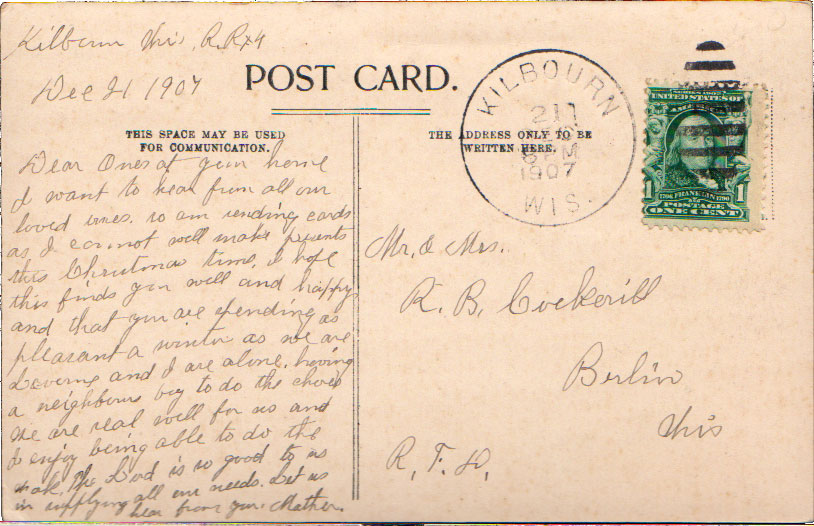 Kilbourn Wis, R.R. #4
Dec 21 1907
POST CARD.
THIS SPACE MAY BE USED
FOR COMMUNICATION.
Dear Ones at your home
I want to hear from all our
loved ones. so am sending cards
as I cannot well make presents
this Christmas time, I hope
this finds you well and happy
and that you are spending as
pleasant a winter as we are
and I are alone, having
a neighbours boy to do the chores
We are real well for us and
I enjoy being able to do the
work. The Lord is so good to us
in supplying all our needs. Let us
hear from you. Mother.
THE ADDRESS ONLY TO BE
WRITTEN HERE.
KILBOURN
21
6 PM
1907
WIS.
UNITED STATES OF
1706 FRANKLIN 1790
1 1
POSTAGE
ONE CENT
Mr. & Mrs.
R. B. Cockerill
Berlin
Wis
R. F. D.